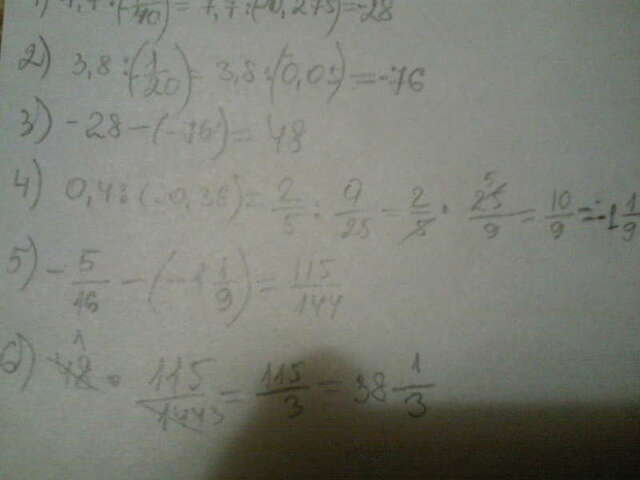 1) 7,7:(-11/40) = 7,7:(-0,275)=-28
2) 3,8:(-1/20)= 3,8:(0,05)=-76
3) -28-(-76)= 48
4) 0,4:(-0,36)= 2/5 : 9/25 = 2/5 · 25/9 5 = 10/9 = -1 1/9
5) - 5/16 - (-1 1/9) = 115/144
6) 48 1 · 115/144 3 = 115/3 = 38 1/3